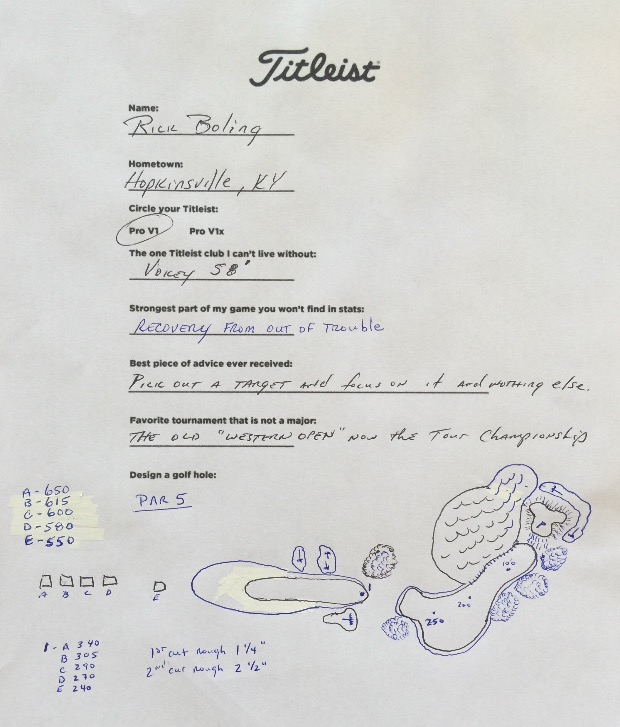 Titleist
Name:
Rick Boling
Hometown:
Hopkinsville, KY
Circle your Titleist:
Pro V1 Pro V1x
The one Titleist club I can't live without:
Vokey 58°
Strongest part of my game you won't find in stats:
RECOVERY FROM OUT OF TROUBLE
Best piece of advice ever received:
PICK OUT A TARGET and focus on it and NOTHING else.
Favorite tournament that is not a major:
THE OLD "WESTERN OPEN" NOW the TOUR Championship
Design a golf hole:
PAR 5
A-650
B-615
C-600
D-580
E-550
A B C D E
1
100
200
250
1 - A 340
B 305
C 290
D 270
E 240
1st cut rough 1 1/4"
2nd cut rough 2 1/2"